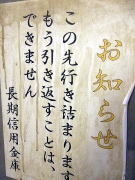 お知らせ
この先行き詰まります
もう引き返すことは、
できません
長期信用金庫